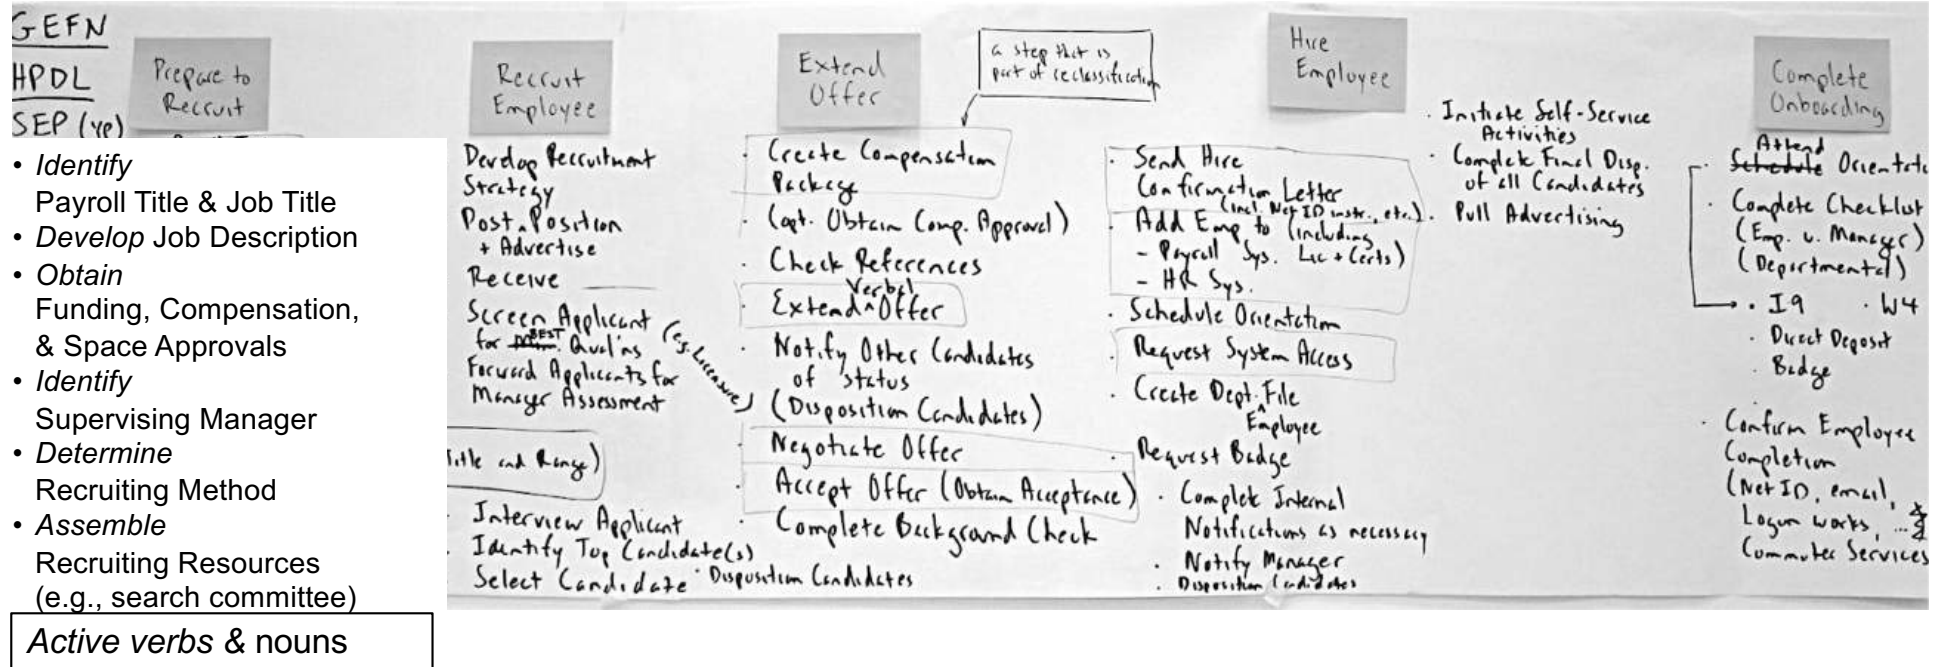 GEFN
HPDL
SEP (yp)
Prepare to
Recruit
• Identify
Payroll Title & Job Title
• Develop Job Description
• Obtain
Funding, Compensation,
& Space Approvals
• Identify
Supervising Manager
• Determine
Recruiting Method
• Assemble
Recruiting Resources
(e.g., search committee)
Active verbs & nouns
Recruit
Employee
Develop Recruitment
Strategy
Post Position
+ Advertise
Receive
Screen Applicant (e.g. Licensure)
for BEST Qual'ns
Forward Applicants for
Manager Assessment
Title and Range)
· Interview Applicant
· Identify Top Candidate(s)
· Select Candidate · Disposition Candidates
Extend
Offer
a step that is
part of reclassification
· Create Compensation
Package
· (opt. Obtain Comp. Approval)
· Check References
· Extend Verbal Offer
· Notify Other Candidates
of status
(Disposition Candidates)
· Negotiate Offer
· Accept Offer (Obtain Acceptance)
· Complete Background Check
Hire
Employee
· Send Hire
Confirmation Letter
(incl. Net ID instr., etc.)
· Add Emp to (including
- Payroll Sys. Lic + Certs)
- HR Sys.
· Schedule Orientation
· Request System Access
· Create Dept. Employee File
· Request Badge
· Complete Internal
Notifications as necessary
· Notify Manager
· Disposition Candidates
· Initiate Self-Service
Activities
· Complete Final Disp.
of all Candidates
· Pull Advertising
Complete
Onboarding
Attend
· Schedule Orientat
· Complete Checklist
(Emp. v. Manager)
(Departmental)
· I9 · W4
· Direct Deposit
· Badge
· Confirm Employee
Completion
(Net ID, email,
Logon works, ...
Commuter Services